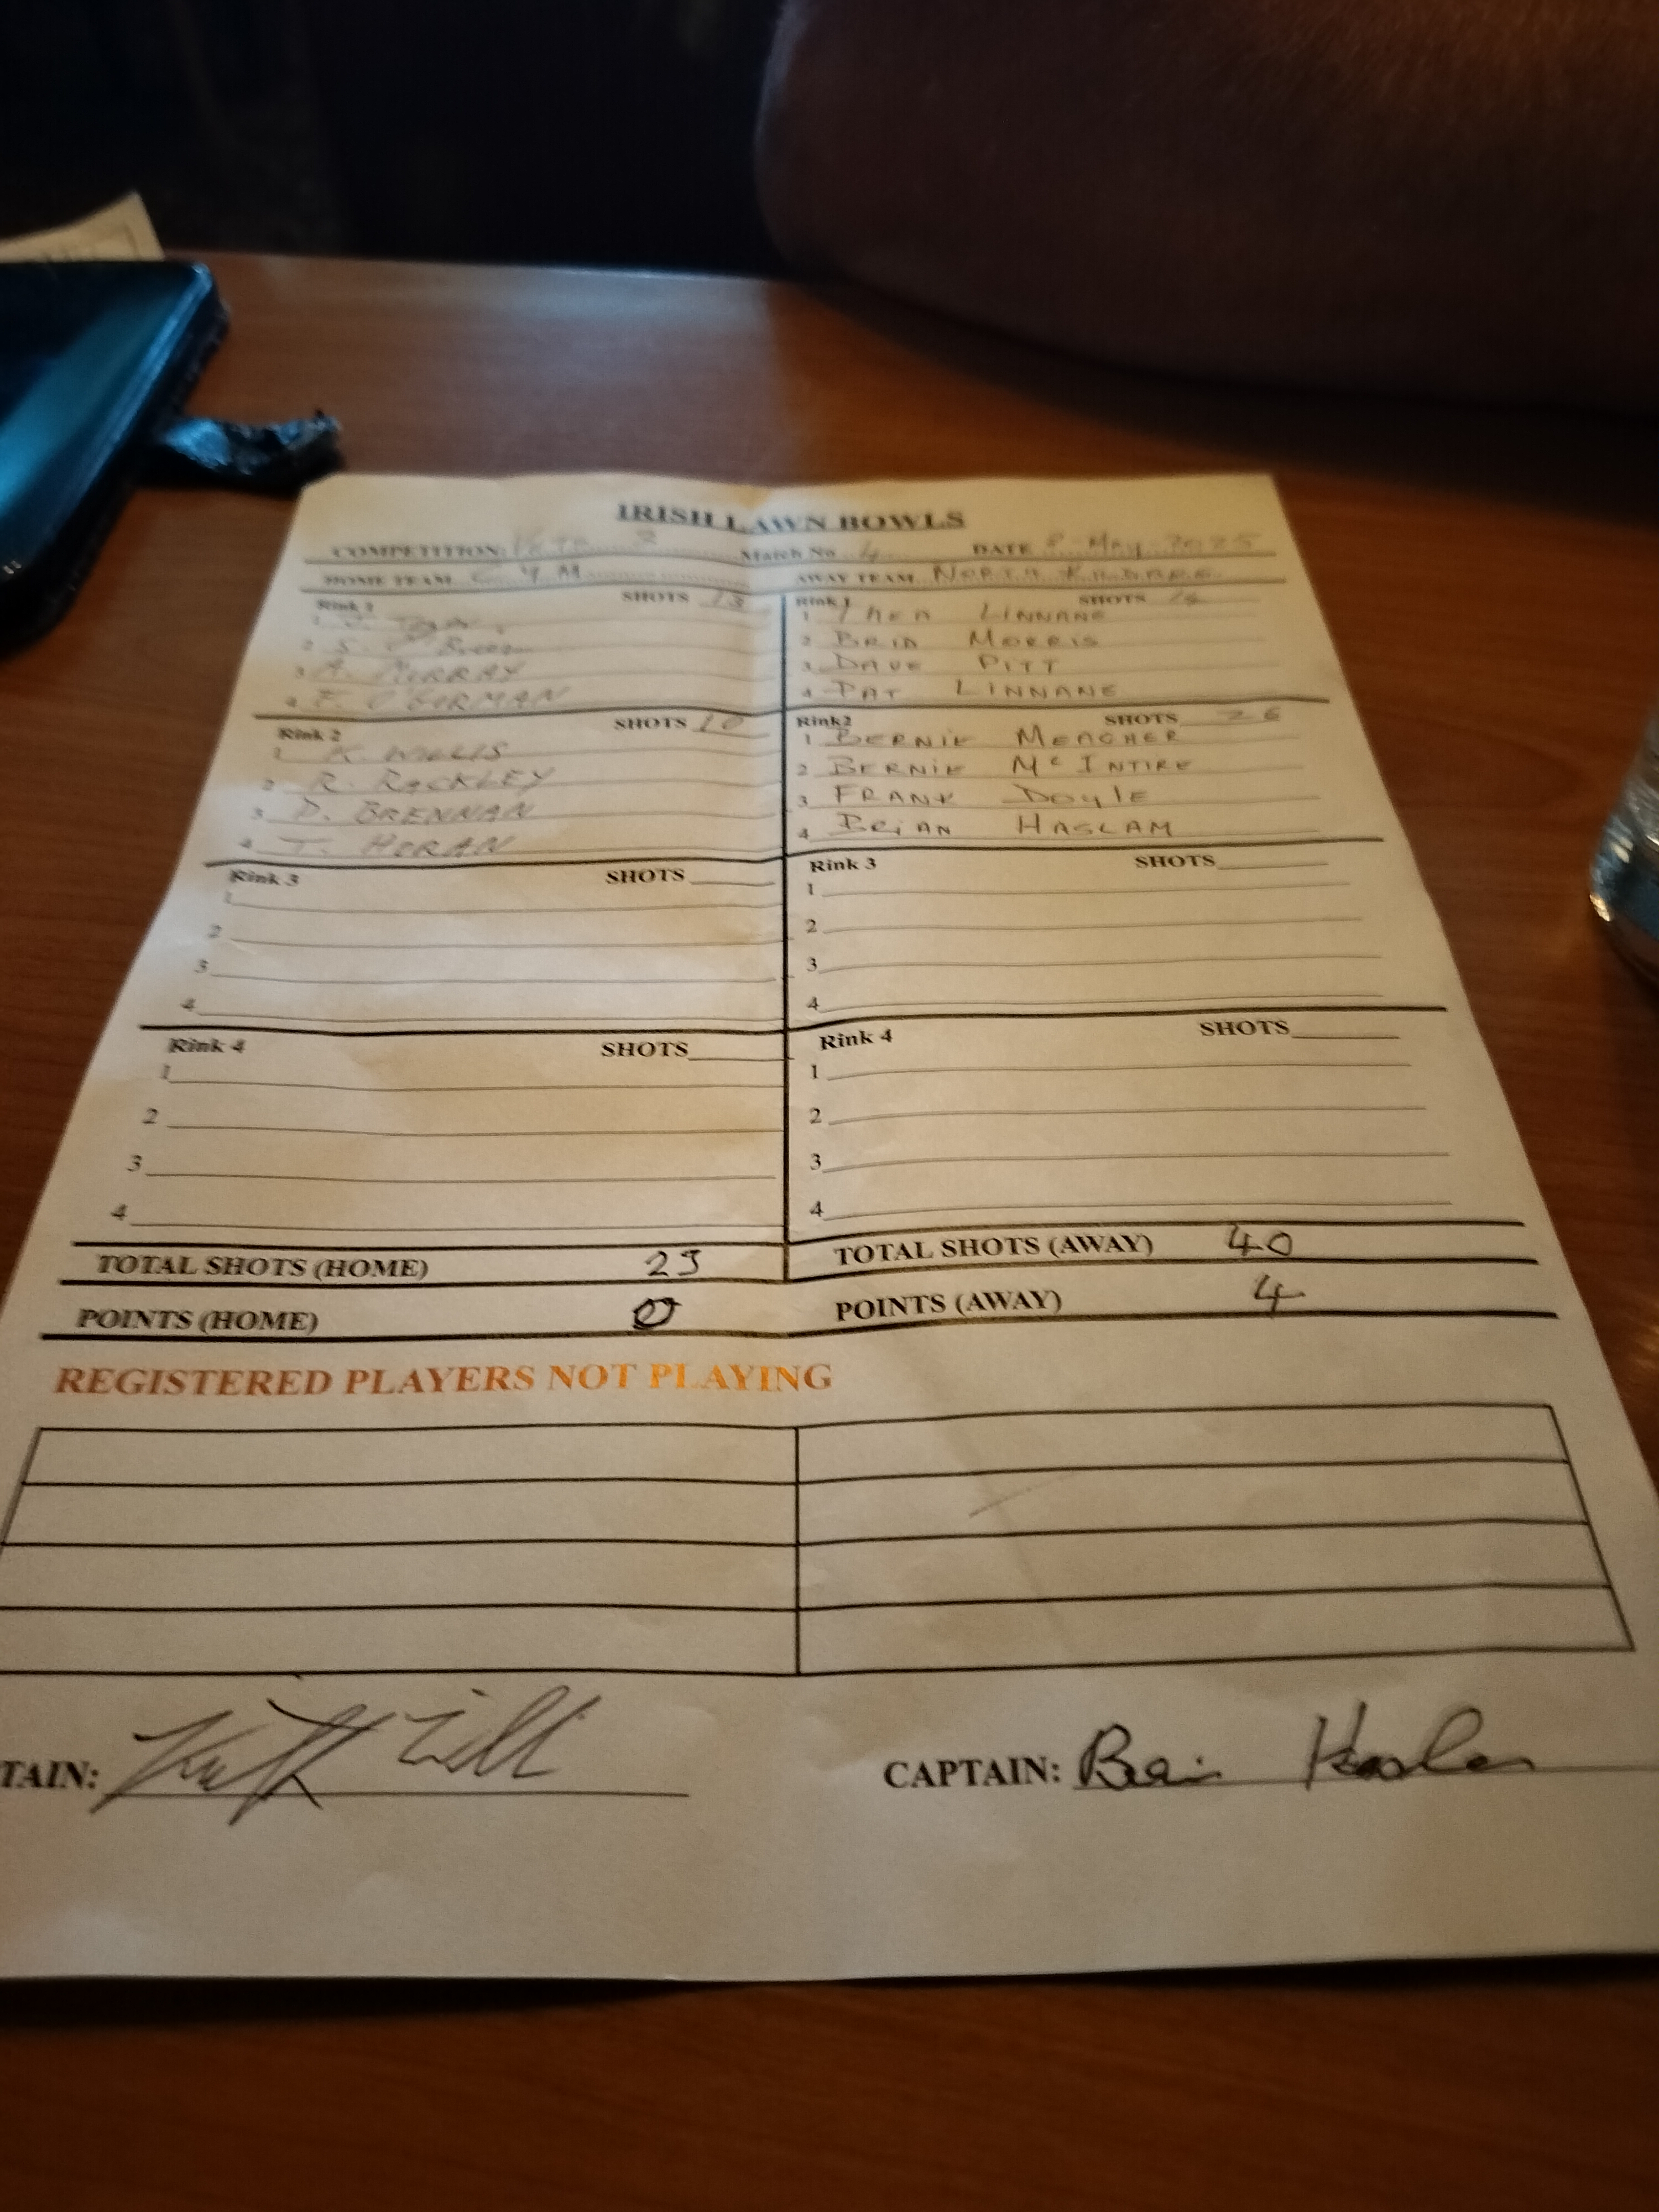 IRISH LAWN BOWLS
COMPETITION 2 Match No 4 DATE 8 May 2025
HOME TEAM C Y M AWAY TEAM NORTH KILDARE
Rink 1 SHOTS 13 Rink 1 SHOTS 14
1 1 THEA LINNANE
2 S. 2 BRID MORRIS
3 A. MURRAY 3 DAVE PITT
4 F. O'GORMAN 4 PAT LINNANE
Rink 2 SHOTS 10 Rink2 SHOTS 26
1 K. WILLIS 1 BERNIE MEAGHER
2 R. RACKLEY 2 BERNIE Mc INTIRE
3 D. BRENNAN 3 FRANK DOYLE
4 T. HORAN 4 BRIAN HASLAM
Rink 3 SHOTS Rink 3 SHOTS
1 1
2 2
3 3
4 4
Rink 4 SHOTS Rink 4 SHOTS
1 1
2 2
3 3
4 4
TOTAL SHOTS (HOME) 23 TOTAL SHOTS (AWAY) 40
POINTS (HOME) 0 POINTS (AWAY) 4
REGISTERED PLAYERS NOT PLAYING
TAIN: CAPTAIN: Brian Haslam